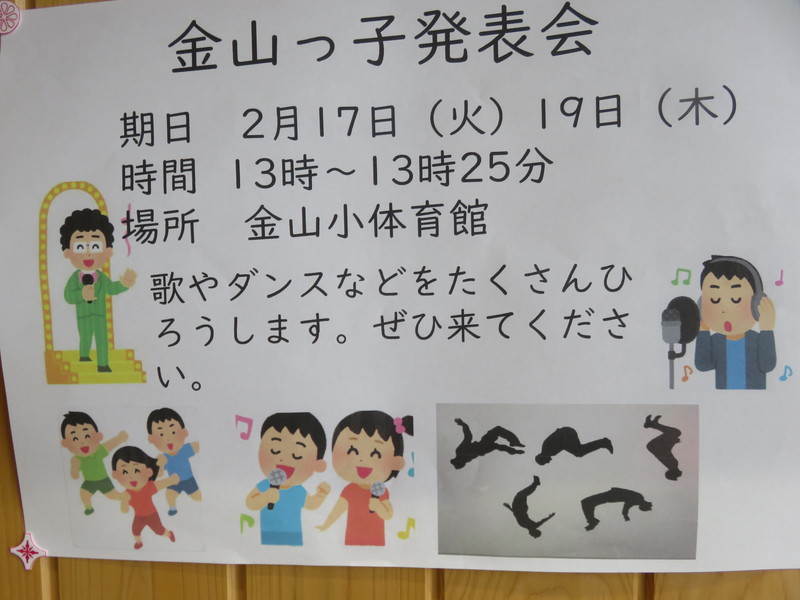 金山っ子発表会
期日　2月17日（火）19日（木）
時間　13時～13時25分
場所　金山小体育館
歌やダンスなどをたくさんひ
ろうします。ぜひ来てくださ
い。